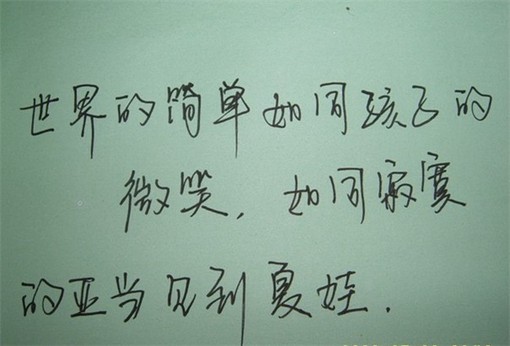 世界的简单如同孩子的
微笑,如同寂寞
的亚当见到夏娃.